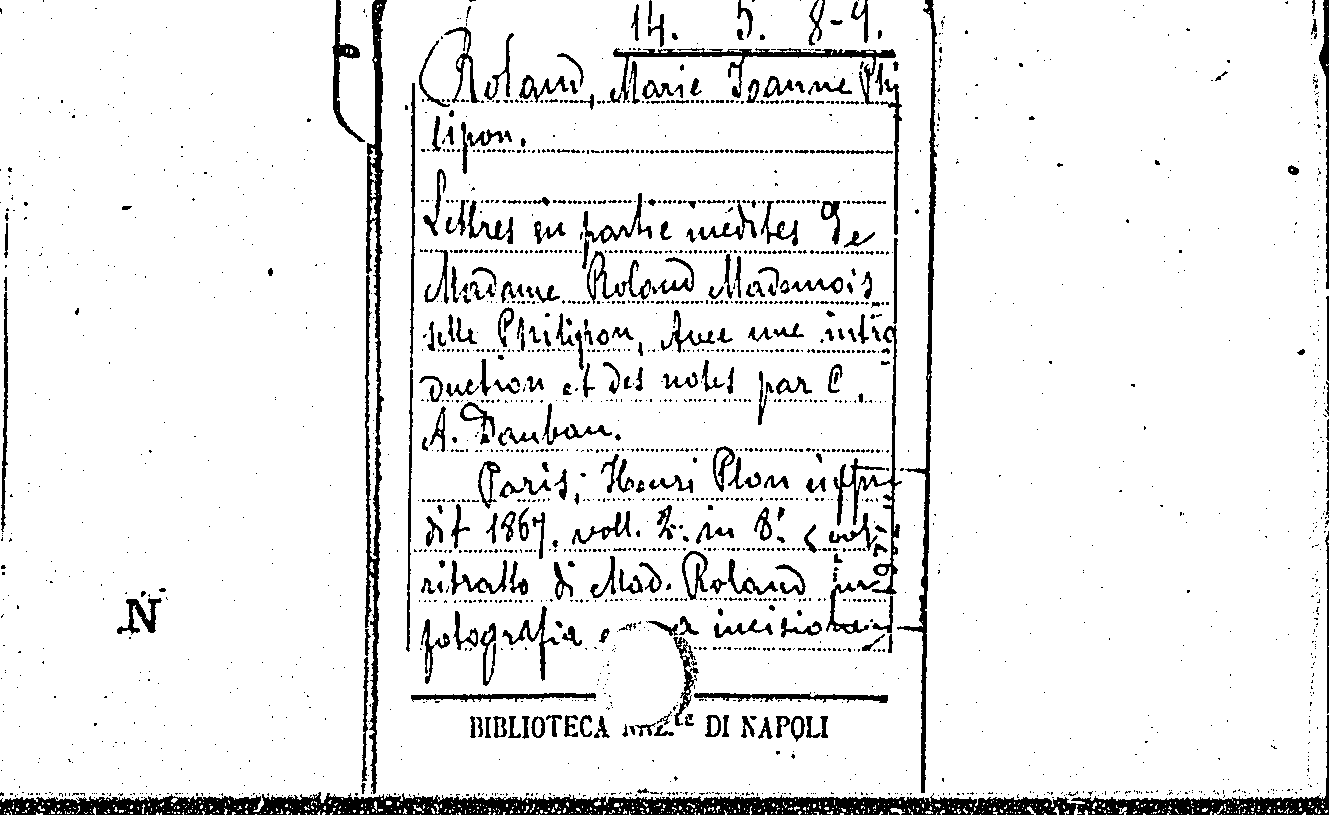 14. 5. 8-9.
Roland, Marie Joanne Phi
lipon.
Lettres en partie inédites de
Madame Roland Mademois
selle Philipon, Avec une intro
duction et des notes par C.
A. Dauban.
Paris; Henri Plon
dit 1867, voll. 2. in 8.° (col
ritratto di Mad. Roland in
fotografia e a incisione
BIBLIOTECA NAZ.le DI NAPOLI
N